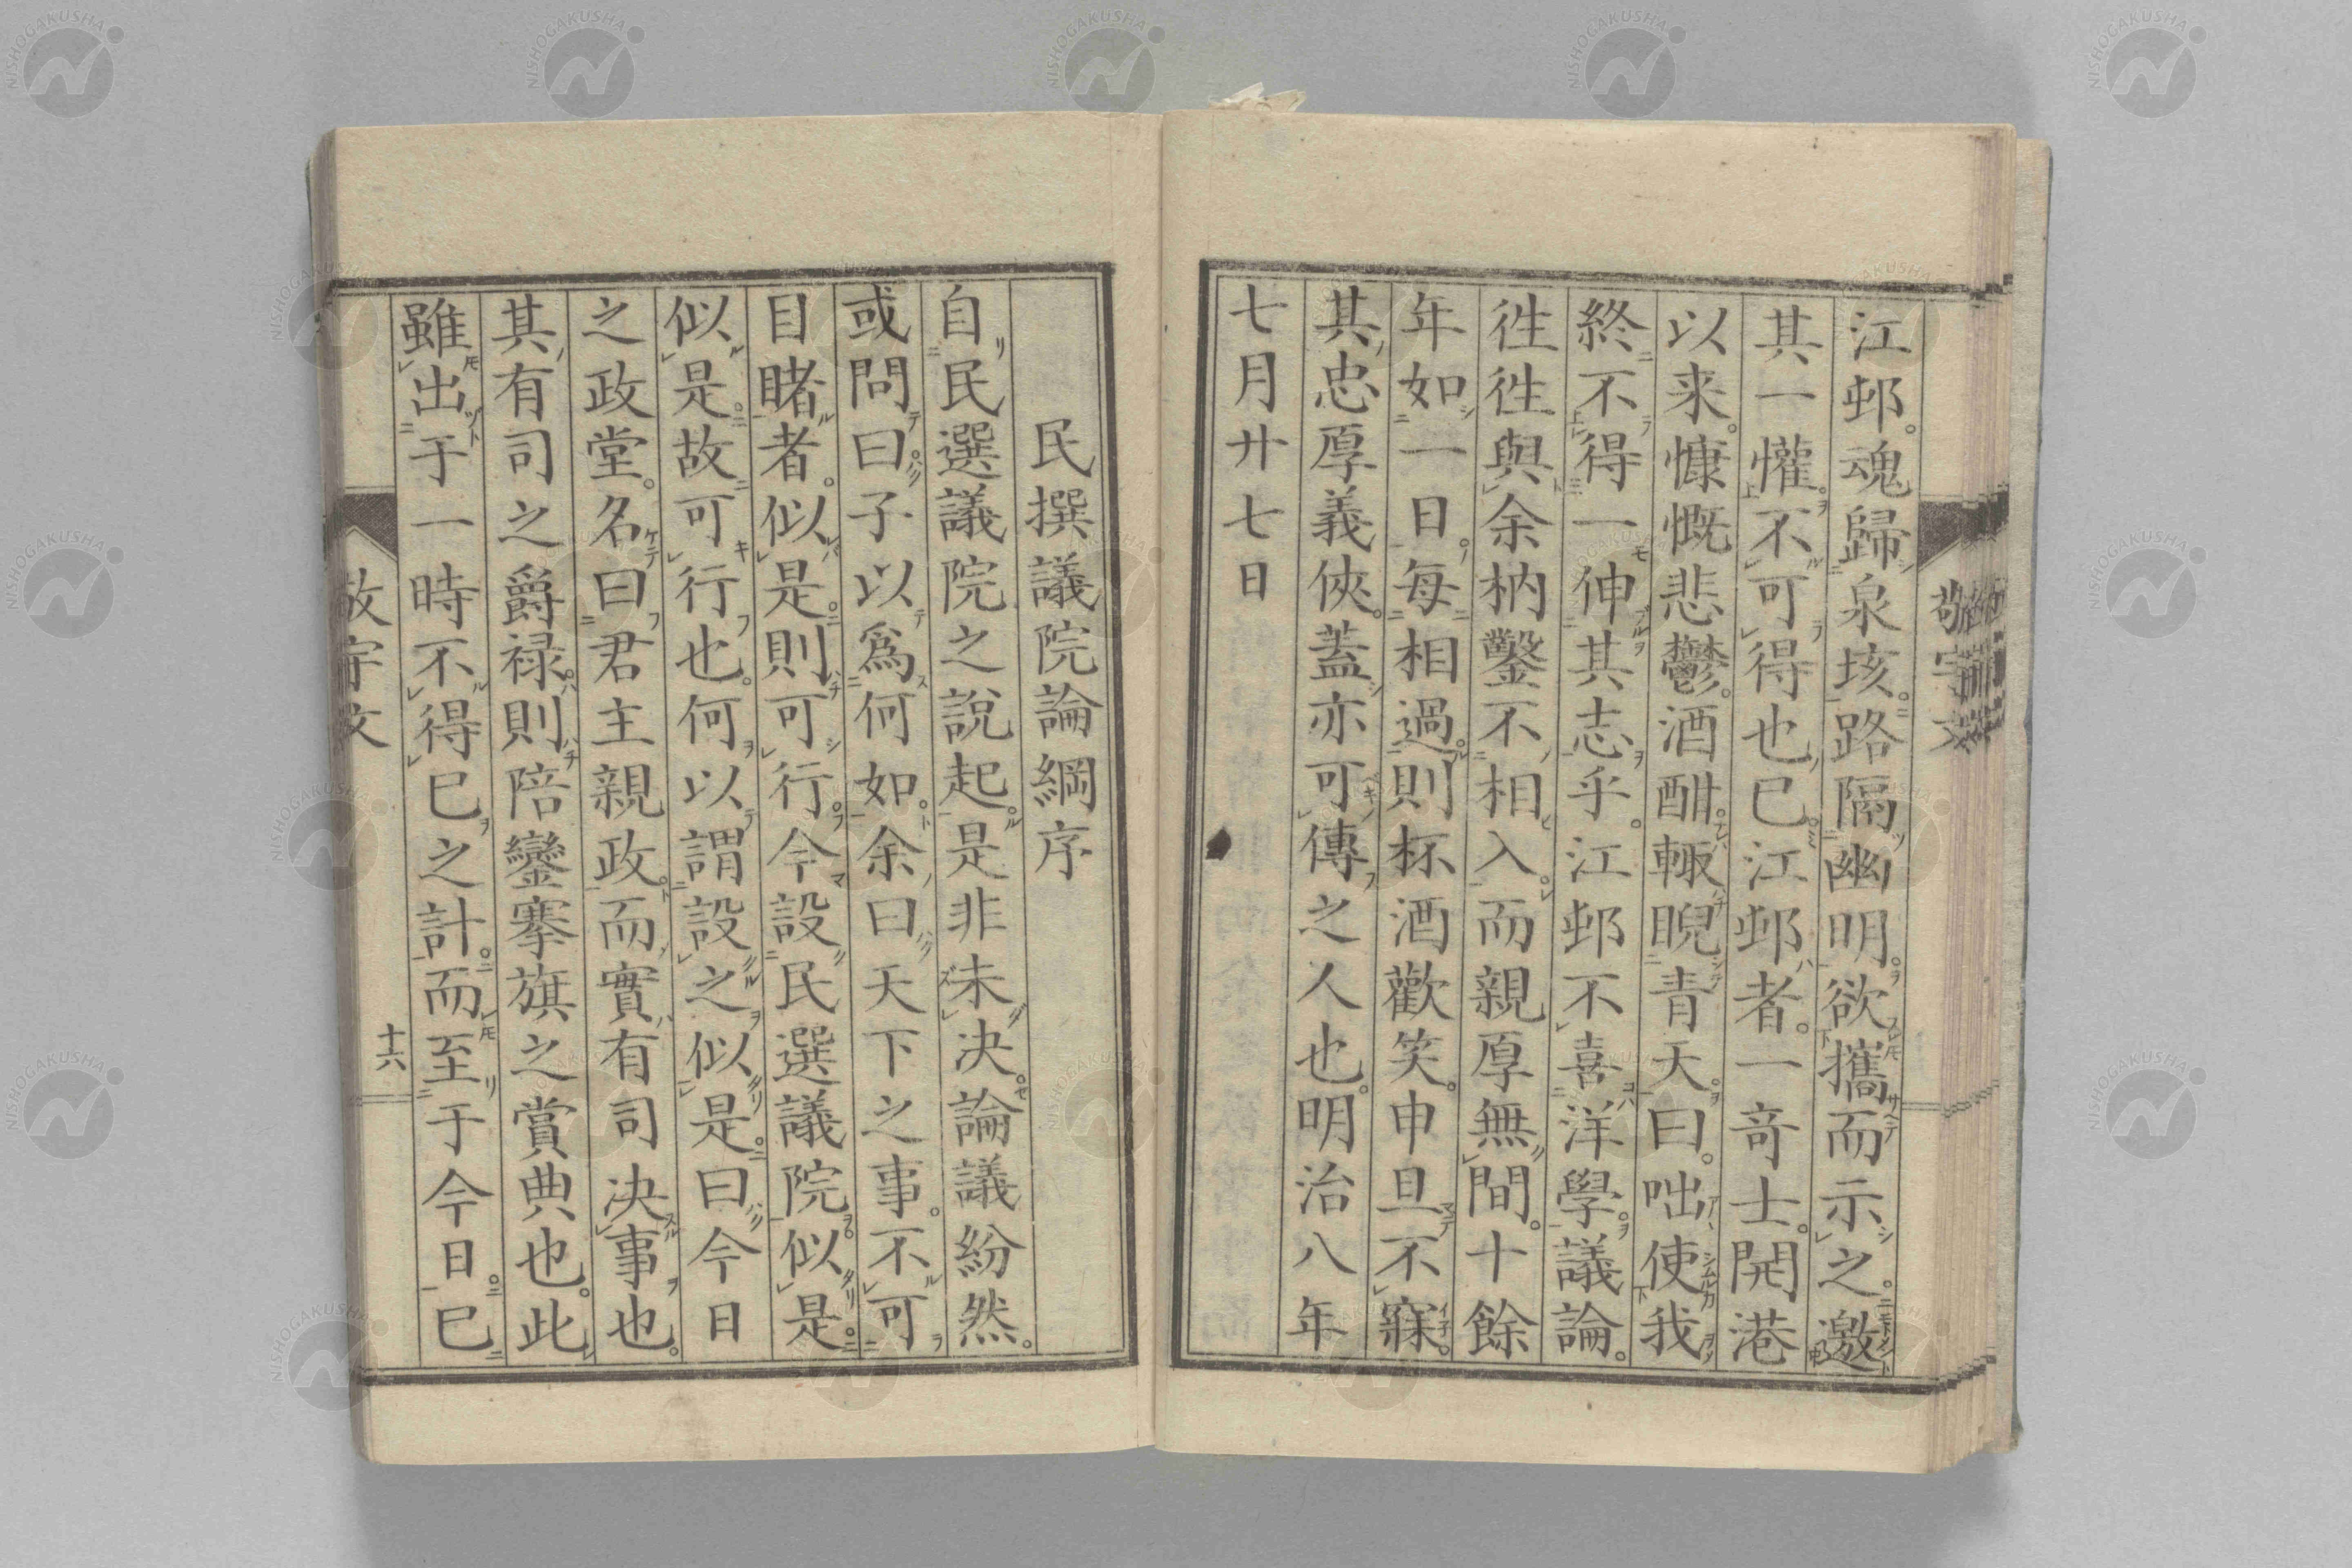 江邨。魂歸泉垓。路隔幽明。欲攜而示之。邀
其一懽。不可得也已。江邨者。一奇士。開港
以来。慷慨悲鬱。酒酣。輙睨青天。曰。咄使我
終不得一伸其志乎。江邨不喜洋學。議論。
徃徃與余枘鑿不相入。而親厚無間。十餘
年如一日。每相過。則杯酒歡笑。申旦不寐。
其忠厚義俠。蓋亦可傳之人也。明治八年
七月廿七日
民撰議院論綱序
自民選議院之說起。是非未決。論議紛然。
或問曰。子以爲何如。余曰。天下之事。不可
目睹者。似是。則可行。今設民選議院。似是
似是。故可行也。何以謂設之似是。曰。今日
之政堂。名曰君主親政。而實有司决事也。
其有司之爵祿。則陪鑾搴旗之賞典也。此
雖出于一時不得已之計。而至于今日。已
敬宇文
十六
敬宇文
NISHOGAKUSHA